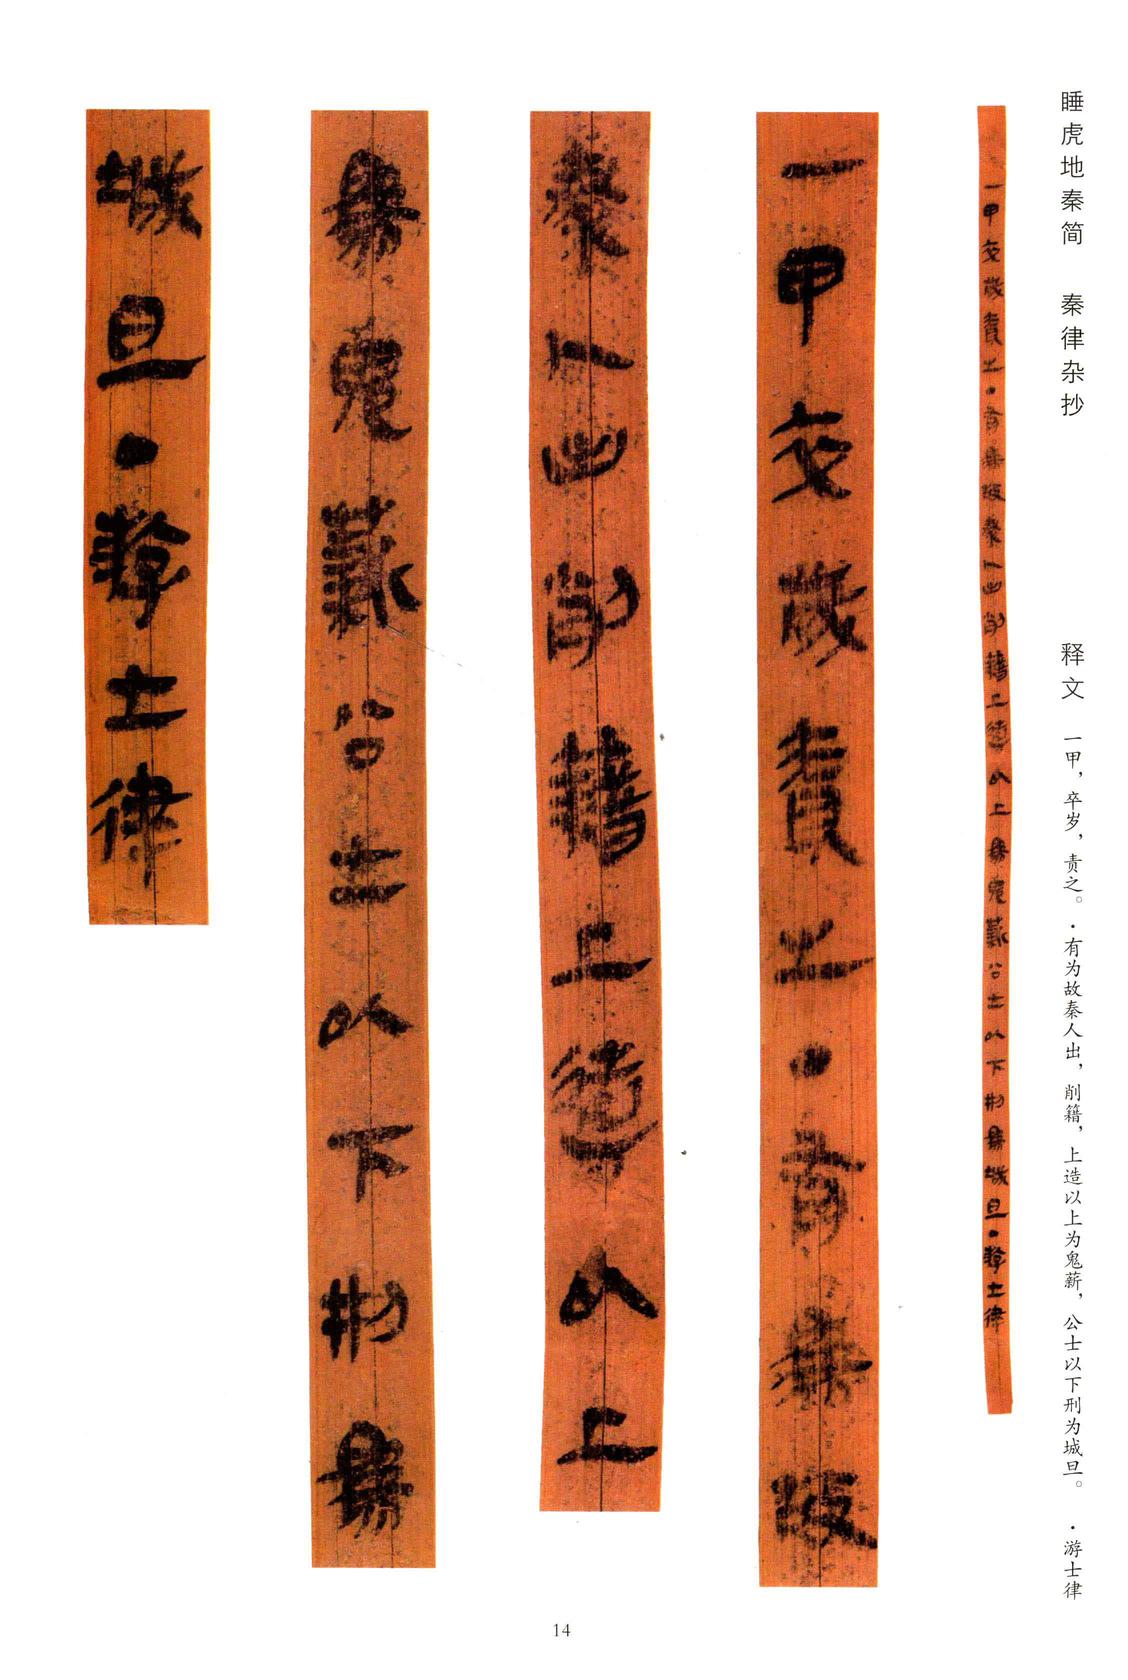 睡虎地秦简 秦律杂抄 释文 一甲，卒岁，责之。·有为故秦人出，削籍，上造以上为鬼薪，公士以下刑为城旦。 ·游士律
一甲卒歲責之·有爲故秦人出削籍上造以上爲鬼薪公士以下刑爲城旦·游士律
一甲卒歲責之·有爲故
秦人出削籍上造以上
爲鬼薪公士以下刑爲
城旦·游士律
14